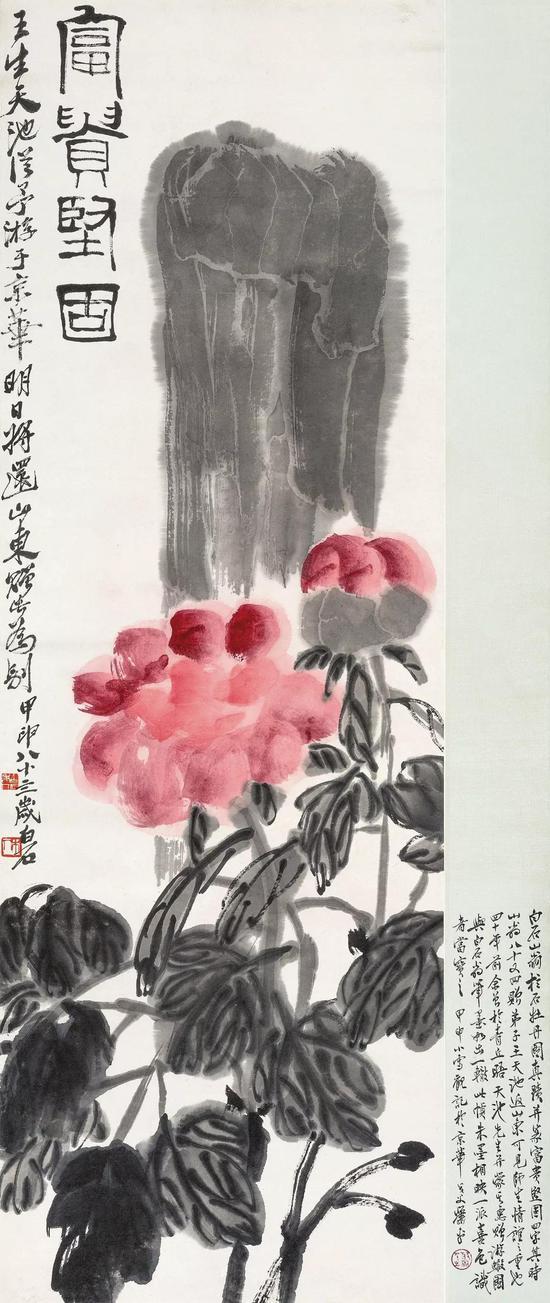 富貴堅固
王生天池從予游于京華明日將還山東贈此為別甲申八十三歲白石
白石山翁柱石牡丹圖真蹟并篆富貴堅固四字其時
山翁八十又四贈弟子王天池返山東可見師生情誼之重也
四十年前余曾於青丘晤天池先生并蒙其惠贈游蝦圖
與白石翁筆墨如出一轍此幀朱墨相映一派喜色識
者當寶之甲申小雪觀記於京華